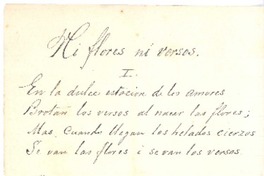 Ni flores ni versos.
I.
En la dulce estacion de los amores
Brotan los versos al nacer las flores;
Mas, Cuando llegan los helados cierzos
Se van las flores i se van los versos.